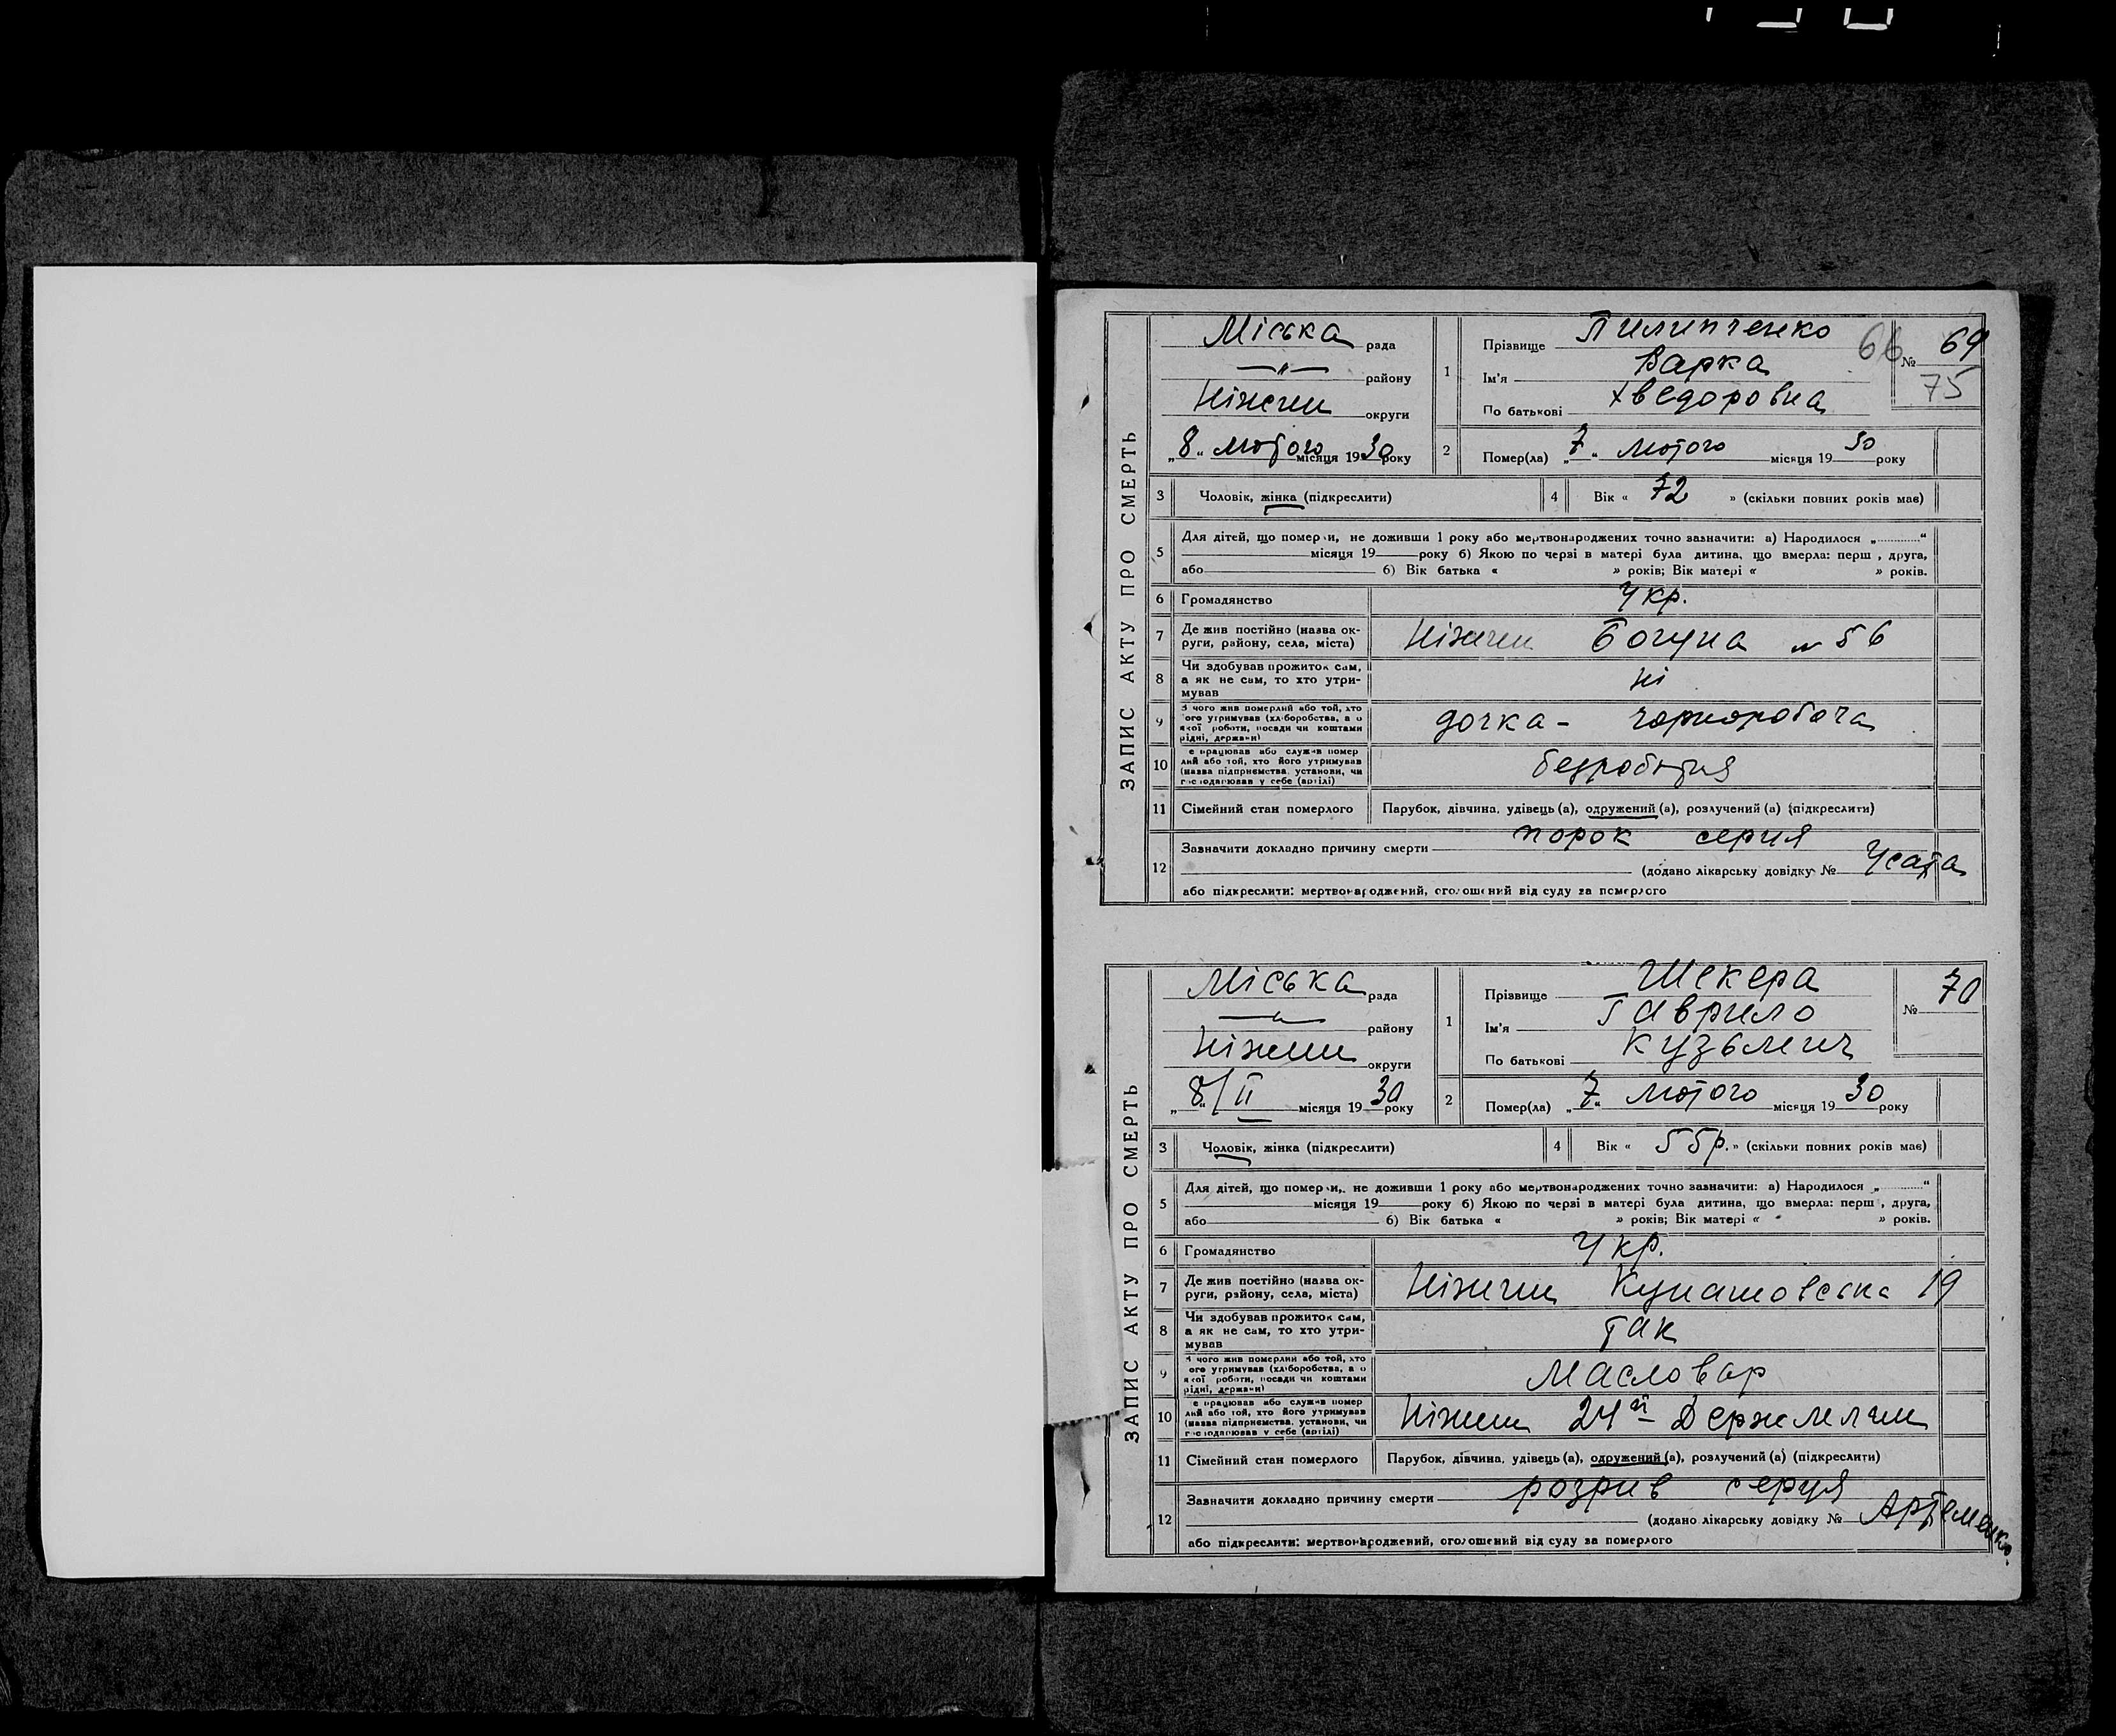 ЗАПИС АКТУ ПРО СМЕРТЬ
Міська рада
—„— району
Ніжин округи
„8“ лютого місяця 1930 року
1 Прізвище Пилипченко
Ім'я Варка
По батькові Хведоровна
66 № 69
75
2 Помер(ла) „7“ лютого місяця 1930 року
3 Чоловік, жінка (підкреслити)
4 Вік « 72 » (скільки повних років має)
5 Для дітей, що померли, не доживши 1 року або мертвонароджених точно зазначити: а) Народилося „............“
місяця 19 року б) Якою по черзі в матері була дитина, що вмерла: перш , друга,
або 6) Вік батька « » років; Вік матері « » років.
6 Громадянство Укр.
7 Де жив постійно (назва ок-
руги, району, села, міста) Ніжин Богуна № 56
8 Чи здобував прожиток сам,
а як не сам, то хто утри-
мував ні
9 З чого жив померлий або той, хто
ого утримував (хліборобства, а о
якої роботи, посади чи коштами
рідні, держави) дочка - чорноробоча
10 е працював або служив помер
лий або той, хто його утримував
(назва підприємства, установи, чи
господарював у себе (артілі) безробітня
11 Сімейний стан померлого Парубок, дівчина, удівець (а), одружений (а), розлучений (а) (підкреслити)
12 Зазначити докладно причину смерти порок серця
(додано лікарську довідку № Усата
або підкреслити: мертвонароджений, оголошений від суду за померлого
ЗАПИС АКТУ ПРО СМЕРТЬ
Міська рада
—„— району
Ніжин округи
„8“/II місяця 1930 року
1 Прізвище Шекера
Ім'я Гаврило
По батькові Кузьмич
№ 70
2 Помер(ла) „7“ лютого місяця 1930 року
3 Чоловік, жінка (підкреслити)
4 Вік « 55р. » (скільки повних років має)
5 Для дітей, що померли, не доживши 1 року або мертвонароджених точно зазначити: а) Народилося „............“
місяця 19 року б) Якою по черзі в матері була дитина, що вмерла: перш , друга,
або 6) Вік батька « » років; Вік матері « » років.
6 Громадянство Укр.
7 Де жив постійно (назва ок-
руги, району, села, міста) Ніжин Кунашовська 19
8 Чи здобував прожиток сам,
а як не сам, то хто утри-
мував так
9 З чого жив померлий або той, хто
ого утримував (хліборобства, а о
якої роботи, посади чи коштами
рідні, держави) Масловар
10 е працював або служив помер
лий або той, хто його утримував
(назва підприємства, установи, чи
господарював у себе (артілі) Ніжин 24й Держмлин
11 Сімейний стан померлого Парубок, дівчина, удівець (а), одружений (а), розлучений (а) (підкреслити)
12 Зазначити докладно причину смерти розрив серця
(додано лікарську довідку № Артеменко.
або підкреслити: мертвонароджений, оголошений від суду за померлого